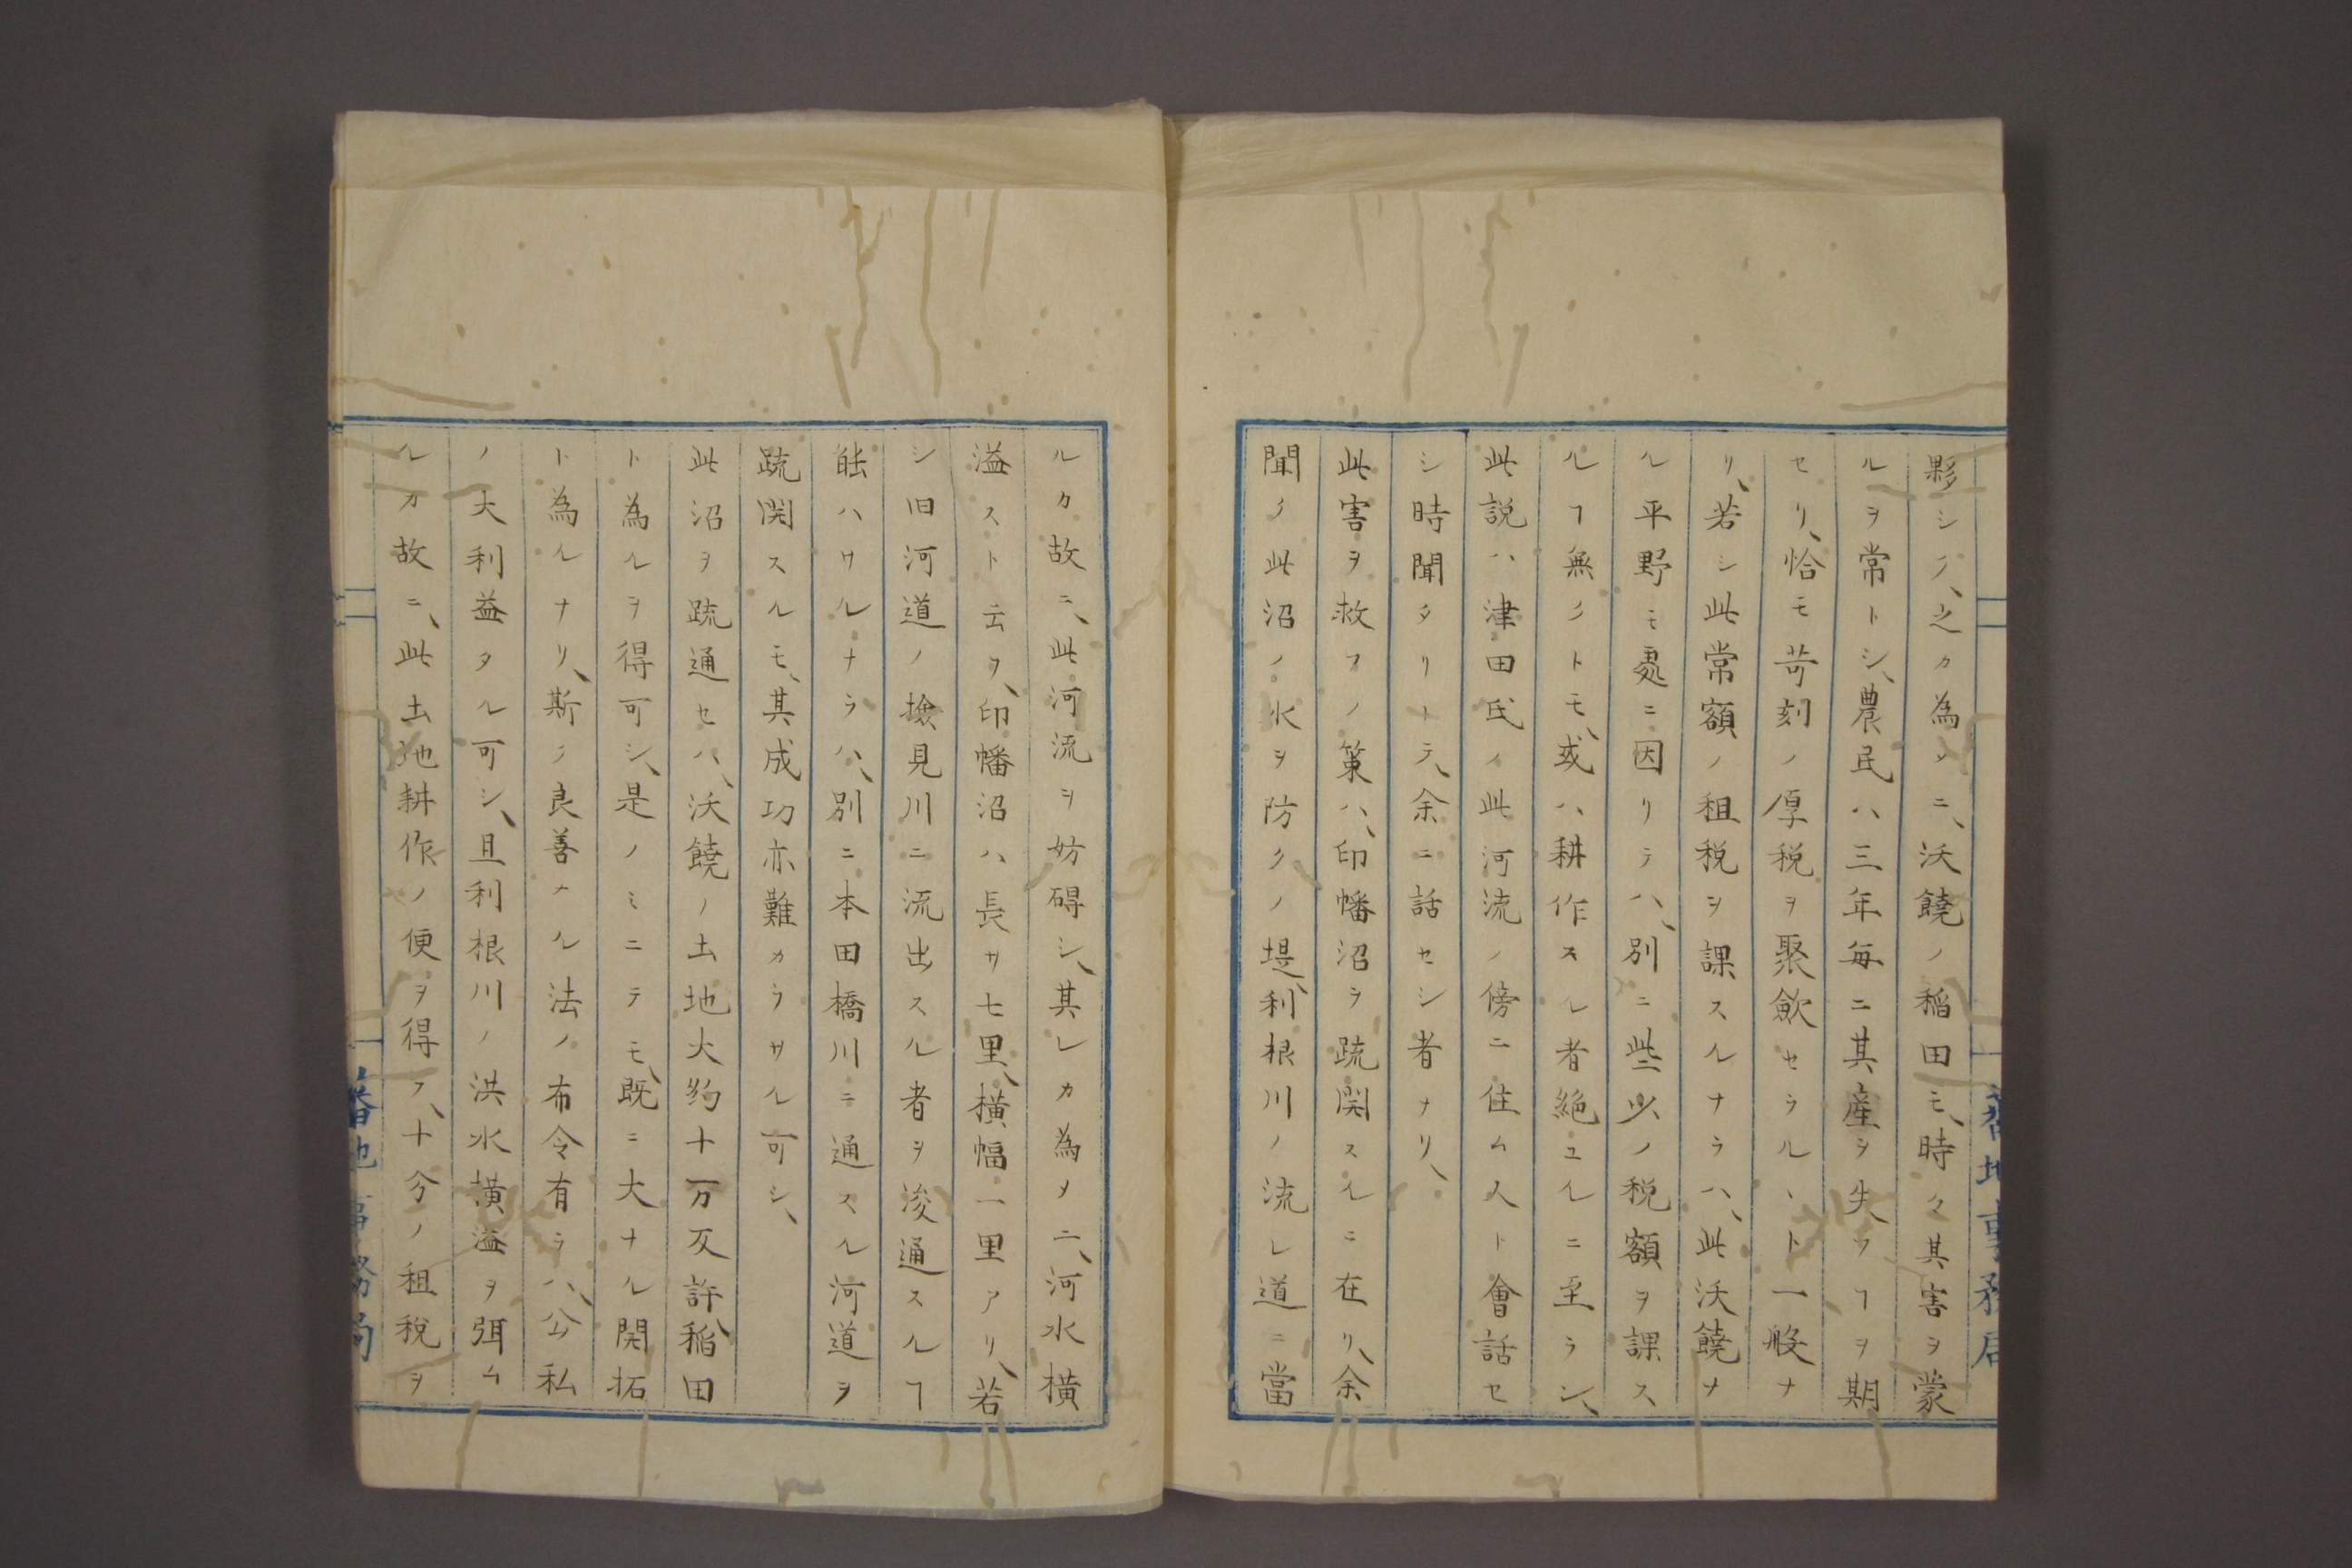 夥シク、之カ為メニ、沃饒ノ稲田モ、時々其害ヲ蒙
ルヲ常トシ、農民ハ三年毎ニ其産ヲ失フヿヲ期
セリ、恰モ苛刻ノ厚税ヲ聚歛セラルヽト一般ナ
リ、若シ此常額ノ租税ヲ課スルナラハ、此沃饒ナ
ル平野モ處ニ因リテハ、別ニ些少ノ税額ヲ課ス
ルヿ無クトモ、或ハ耕作スル者絶ユルニ至ラン、
此説ハ津田氏ノ此河流ノ傍ニ住ム人ト會話セ
シ時聞タリトテ、余ニ話セシ者ナリ、
此害ヲ救フノ策ハ、印幡沼ヲ疏開スルニ在リ、余
聞ク此沼ノ水ヲ防クノ堤、利根川ノ流レ道ニ當
ルカ故ニ、此河流ヲ妨碍シ、其レカ為メニ、河水横
溢スト云ヲ、印幡沼ハ長サ七里、横幅一里アリ、若
シ旧河道ノ撿見川ニ流出スル者ヲ浚通スルヿ
能ハサルナラハ、別ニ本田橋川ニ通スル河道ヲ
疏開スルモ、其成功亦難カラサル可シ、
此沼ヲ疏通セハ、沃饒ノ土地大約十万反許、稲田
ト為ルヲ得可シ、是ノミニテモ、既ニ大ナル開拓
ト為ルナリ、斯ク良善ナル法ノ布令有ラハ、公私
ノ大利益タル可シ、且利根川ノ洪水横溢ヲ弭ム
ルカ故ニ、此土地耕作ノ便ヲ得ヘ、十分ノ租税ヲ